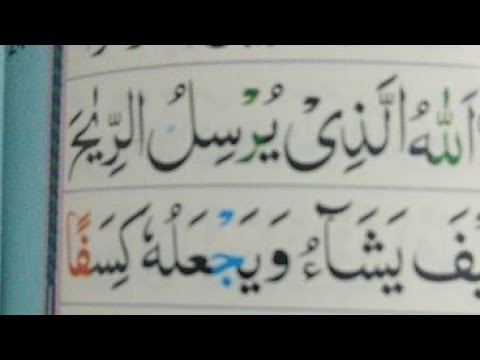 اَللّٰهُ الَّذِىْ يُرْسِلُ الرِّيٰحَ
يَشَآءُ وَيَجْعَلُهٗ كَسَفًا